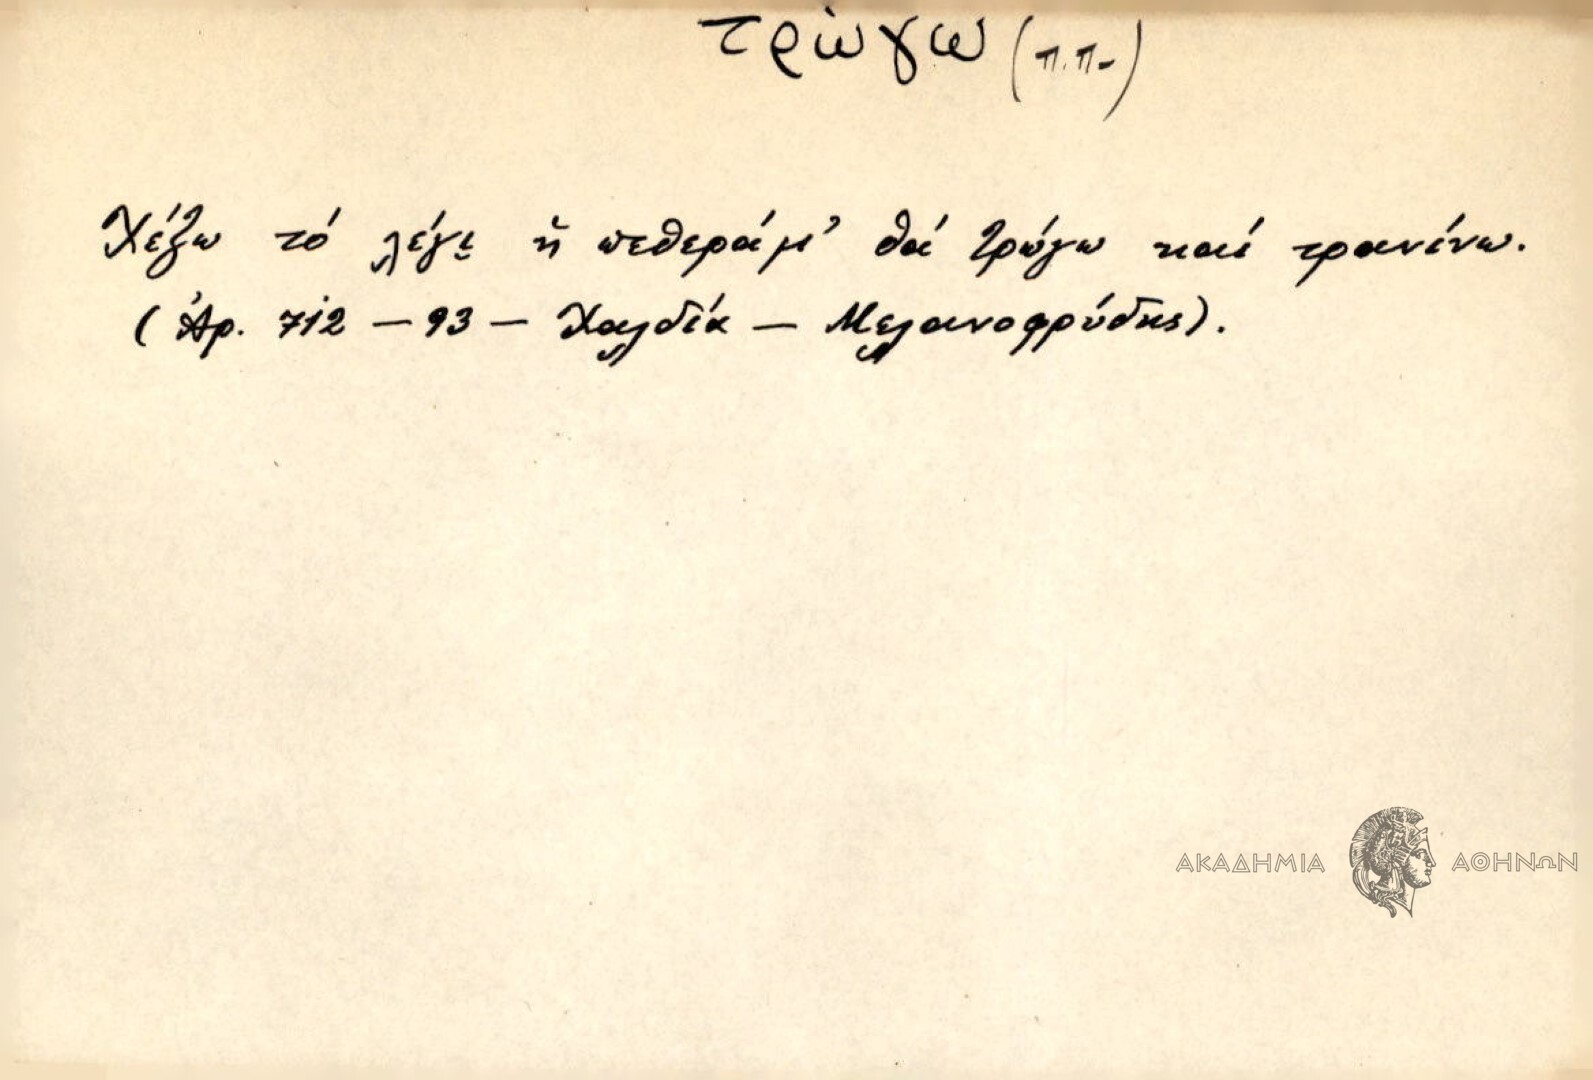 τρώγω (π.π.)
Χέζω τό λέγι ἡ πεθερά μ' θά τρώγω καί τρανίνω.
(Ἀρ. 712 - 93 - Χαλδία - Μελανοφρύδης).
ΑΚΑΔΗΜΙΑ ΑΘΗΝΩΝ